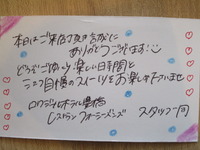 本日はご来店頂き誠に
ありがとうございます
どうぞごゆっくり楽しい日時間と
シェフ自慢のスイーツをお楽しみ下さいませ
ロワジールホテル豊橋
レストラン フォーシーズンズ スタッフ一同